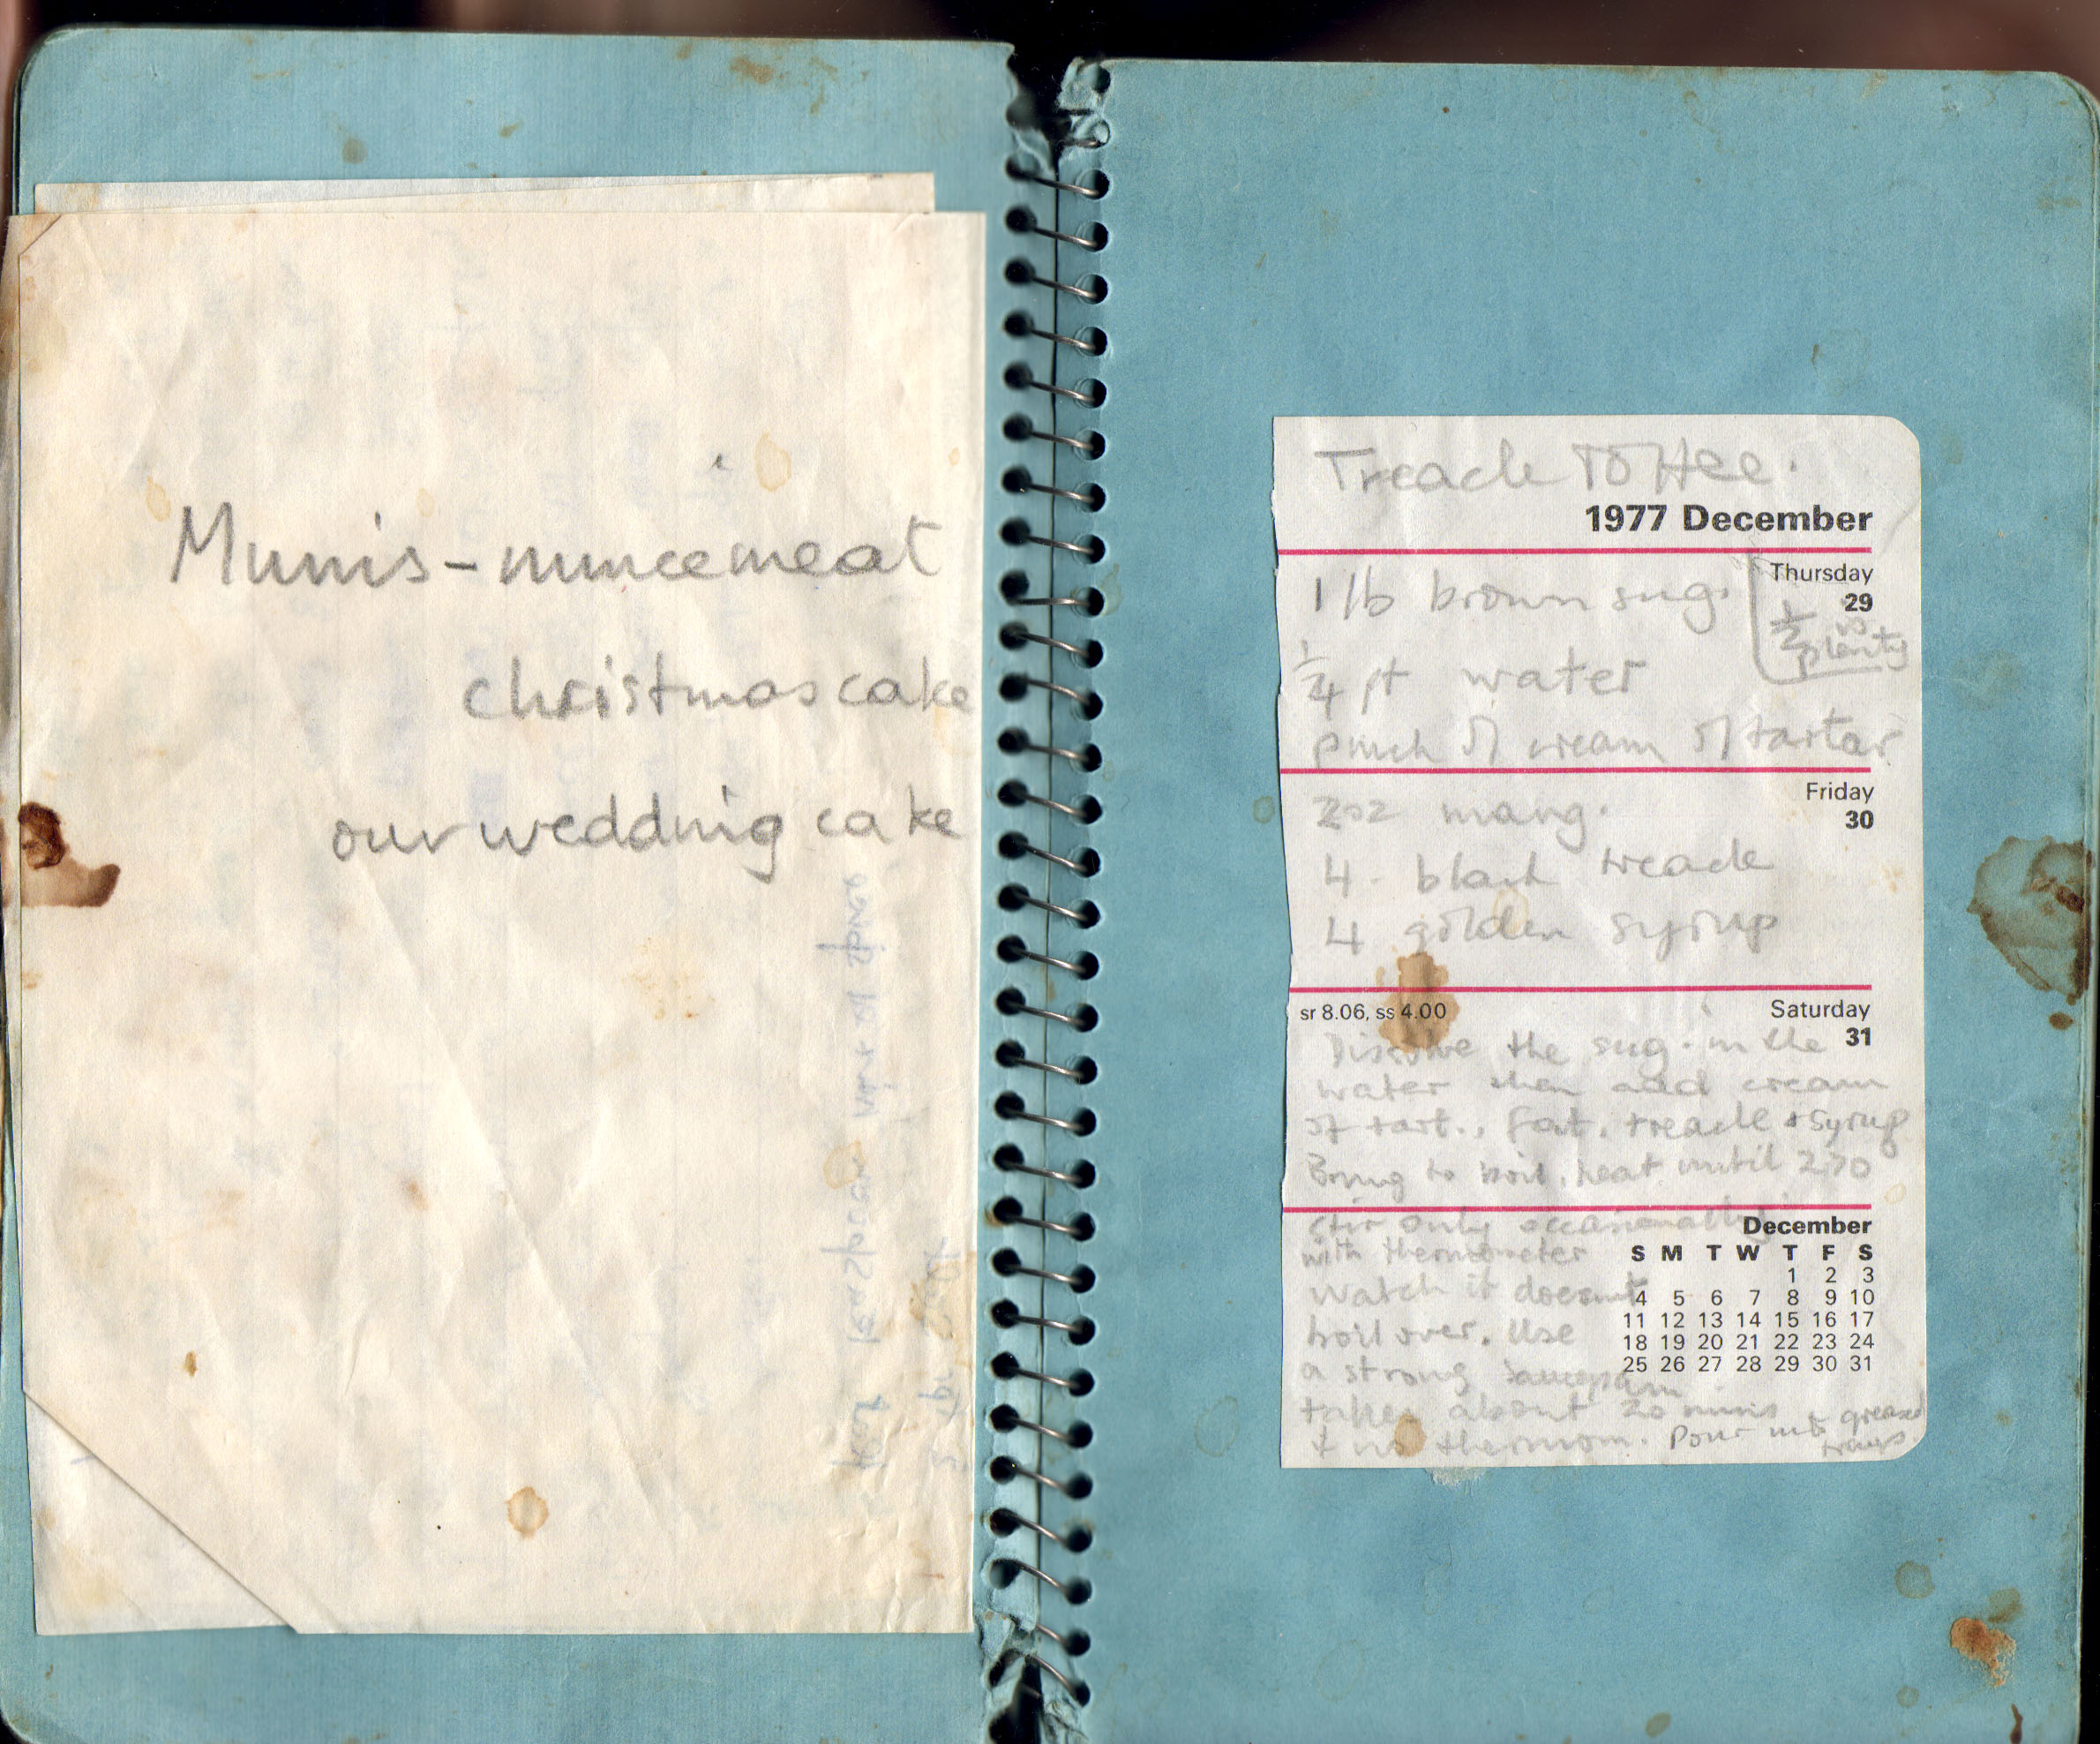 Mum's - mincemeat
christmas cake
our wedding cake
Treacle Toffee.
1977 December
Thursday
29
1 lb brown sug.
½ is
plenty
¼ pt water
pinch of cream of tartar
Friday
30
2oz marg.
4. black treacle
4 golden syrup
sr 8.06, ss 4.00
Saturday
31
Dissolve the sug. in the
water then add cream
of tart., fat, treacle & syrup
Bring to boil, heat until 270
stir only occasionally
with thermometer
Watch it doesn't
boil over. Use
a strong saucepan
takes about 20 mins
& no thermom. Pour into greased
trays.
December
S M T W T F S
1 2 3
4 5 6 7 8 9 10
11 12 13 14 15 16 17
18 19 20 21 22 23 24
25 26 27 28 29 30 31